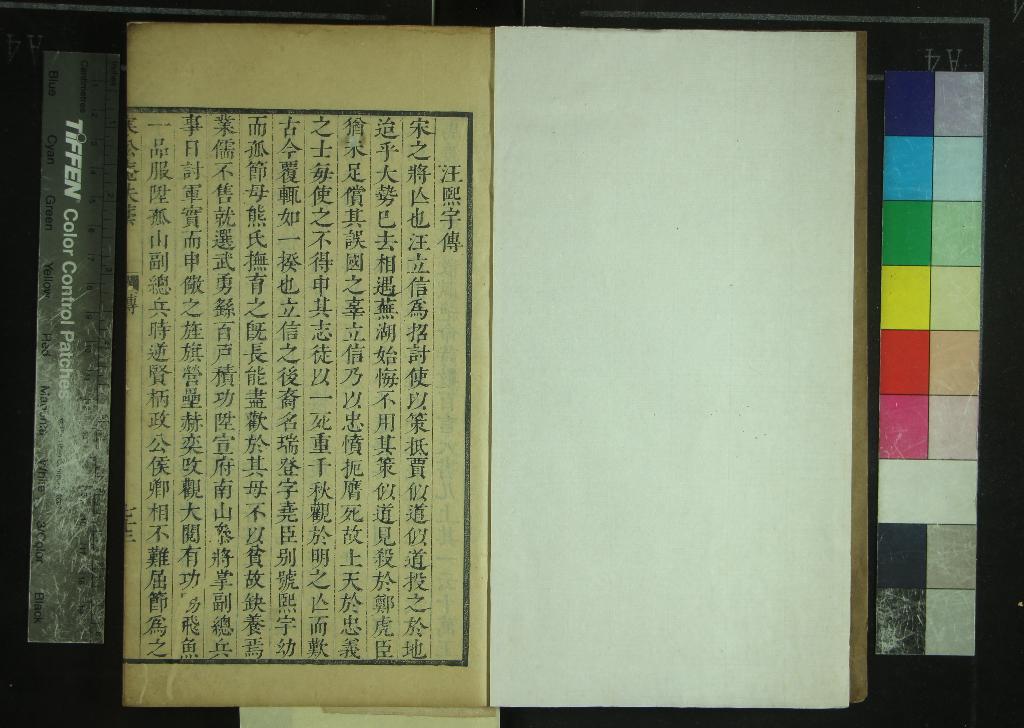 汪熙宇傳
宋之將亾也汪立信為招討使以策抵賈似道似道投之於地
迨乎大勢已去相遇蕪湖始悔不用其策似道見殺於鄭虎臣
猶未足償其誤國之辜立信乃以忠憤扼膺死故上天於忠義
之士每使之不得申其志徒以一死重千秋觀於明之亾而歎
古今覆輒如一揆也立信之後裔名瑞登字堯臣别號熙宇幼
而孤節母熊氏撫育之旣長能盡歡於其母不以貧故缺養焉
業儒不售就選武勇繇百戸積功陞宣府南山叅將掌副總兵
事日討軍實而申儆之旌旗營壘赫奕改觀大閱有功 飛魚
一品服陞孤山副總兵時逆賢柄政公侯卿相不難屈節為之
傳
七三
TIFFEN Color Control Patches
Blue
Cyan
Green
Yellow
Red
Magenta
White
3/Color
Black
Centimetres
Inches
A4
A4